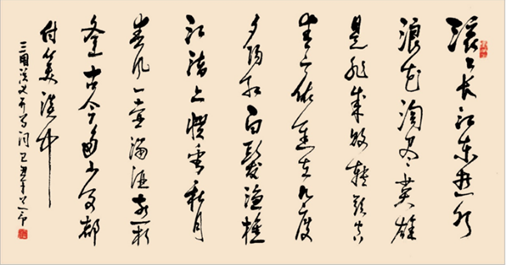 滚滚长江东逝水
浪花淘尽英雄
是非成败转头空
青山依旧在几度
夕阳红白髮渔樵
江渚上惯看秋月
春风一壶浊酒喜相
逢古今多少事都
付笑谈中
三国演义开篇词